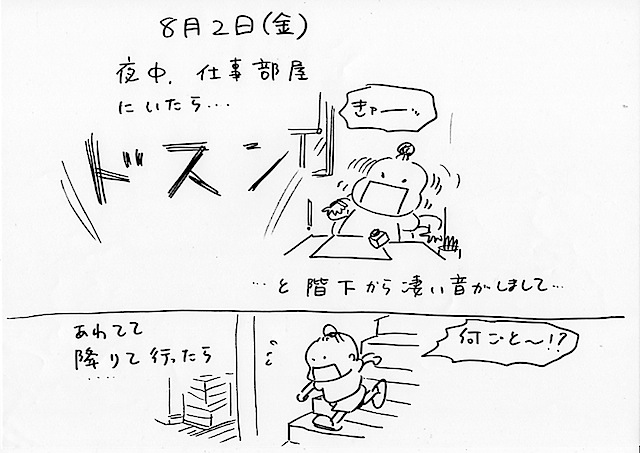 8月2日(金)
夜中、仕事部屋
にいたら…
きゃーーッ
ドスン
!
…と階下から凄い音がしまして…
あわてて
降りて行ったら
何ごと〜!?